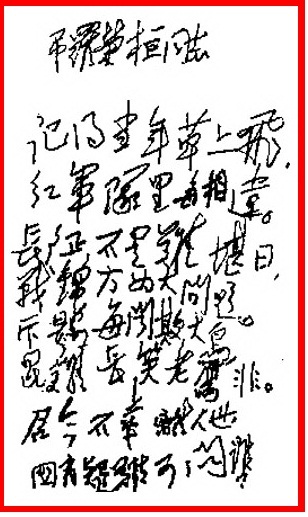 吊羅榮桓同志
记得当年草上飛，
红軍隊里每相違。
長征不是難堪日，
戰錦方为大問題。
斥鷃每聞欺大鳥
昆雞長笑老鷹非。
君今不幸離人世
國有疑難可問誰